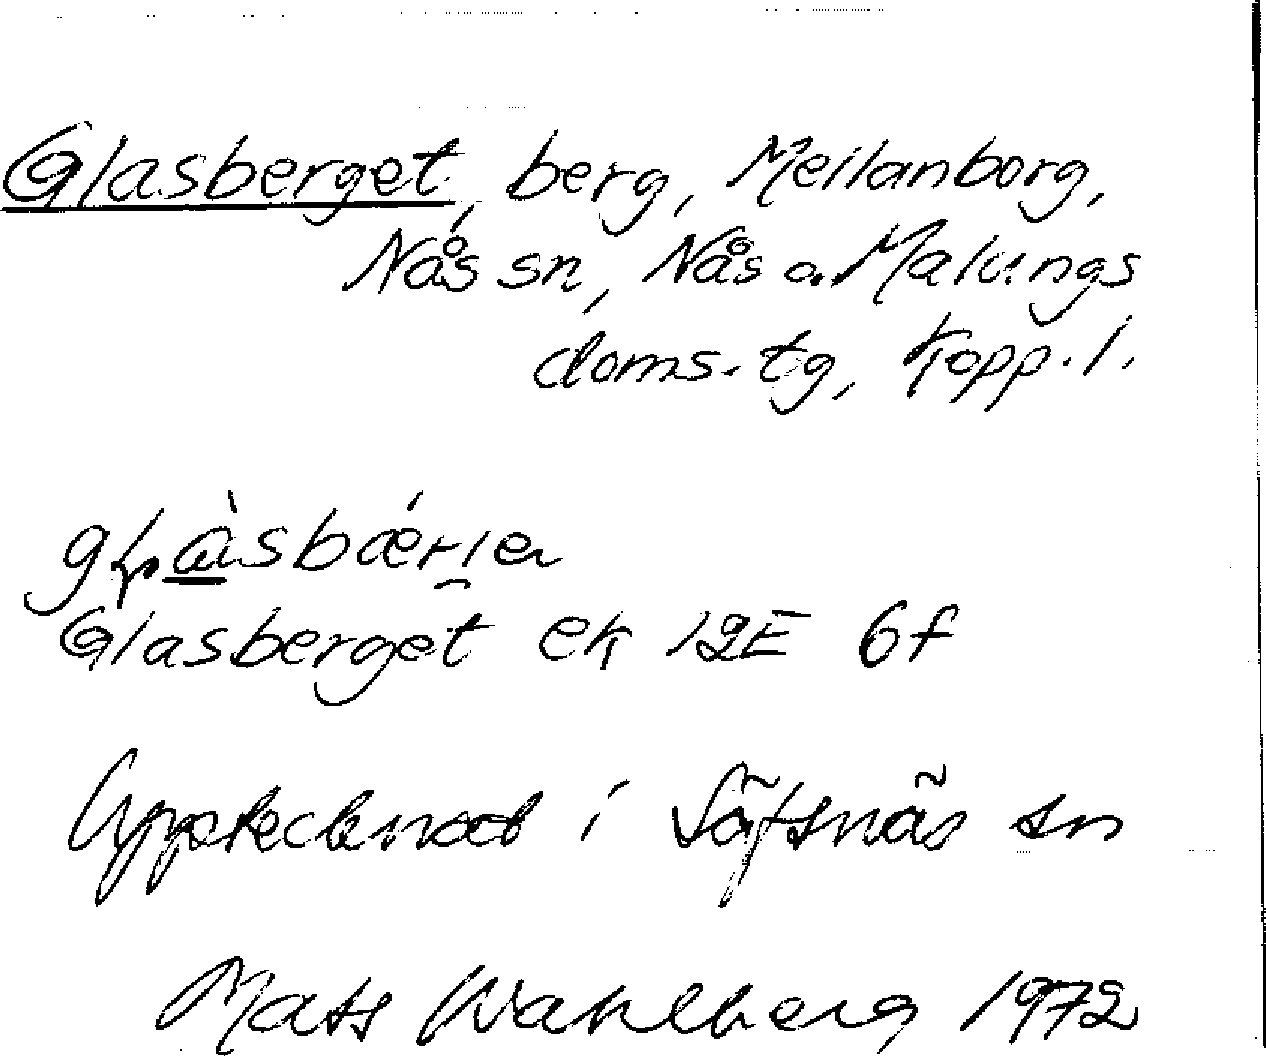 Glasberget, berg, Meilanborg,
Nås sn, Nås o. Malungs
doms. tg, Kopp. l.
Glasberget ek 12E 6f
Upptecknat i Säfsnäs sn
Mats Wahlberg 1972